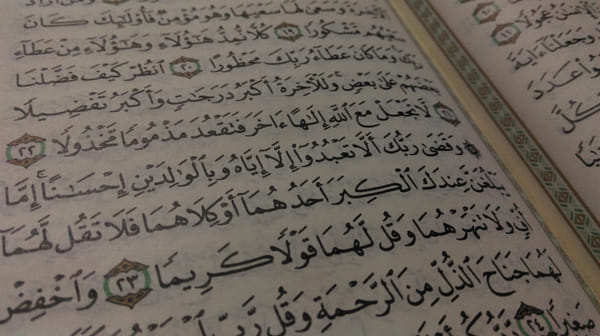 الْأَخِرَةَ وَسَعَىٰ لَهَا سَعْيَهَا وَهُوَ مُؤْمِنٌ فَأُوْلَٰٓئِكَ كَانَ
سَعْيُهُم مَّشْكُورًا ١٩ كُلًّا نُّمِدُّ هَٰٓؤُلَآءِ وَهَٰٓؤُلَآءِ مِنْ عَطَآءِ
رَبِّكَ وَمَا كَانَ عَطَآءُ رَبِّكَ مَحْظُورًا ٢٠ ٱنظُرْ كَيْفَ فَضَّلْنَا
بَعْضَهُمْ عَلَىٰ بَعْضٍ وَلَلْأَخِرَةُ أَكْبَرُ دَرَجَٰتٍ وَأَكْبَرُ تَفْضِيلًا
٢١ لَّا تَجْعَلْ مَعَ ٱللَّهِ إِلَٰهًا ءَاخَرَ فَتَقْعُدَ مَذْمُومًا مَّخْذُولًا ٢٢
وَقَضَىٰ رَبُّكَ أَلَّا تَعْبُدُوٓا۟ إِلَّآ إِيَّاهُ وَبِٱلْوَٰلِدَيْنِ إِحْسَٰنًا إِمَّا
يَبْلُغَنَّ عِندَكَ ٱلْكِبَرَ أَحَدُهُمَآ أَوْ كِلَاهُمَا فَلَا تَقُل لَّهُمَآ
أُفٍّ وَلَا تَنْهَرْهُمَا وَقُل لَّهُمَا قَوْلًا كَرِيمًا ٢٣ وَٱخْفِضْ
لَهُمَا جَنَاحَ ٱلذُّلِّ مِنَ ٱلرَّحْمَةِ وَقُل رَّبِّ
صَغِيرًا
وَجَعَلْنَا ءَايَةَ
كُلَّ